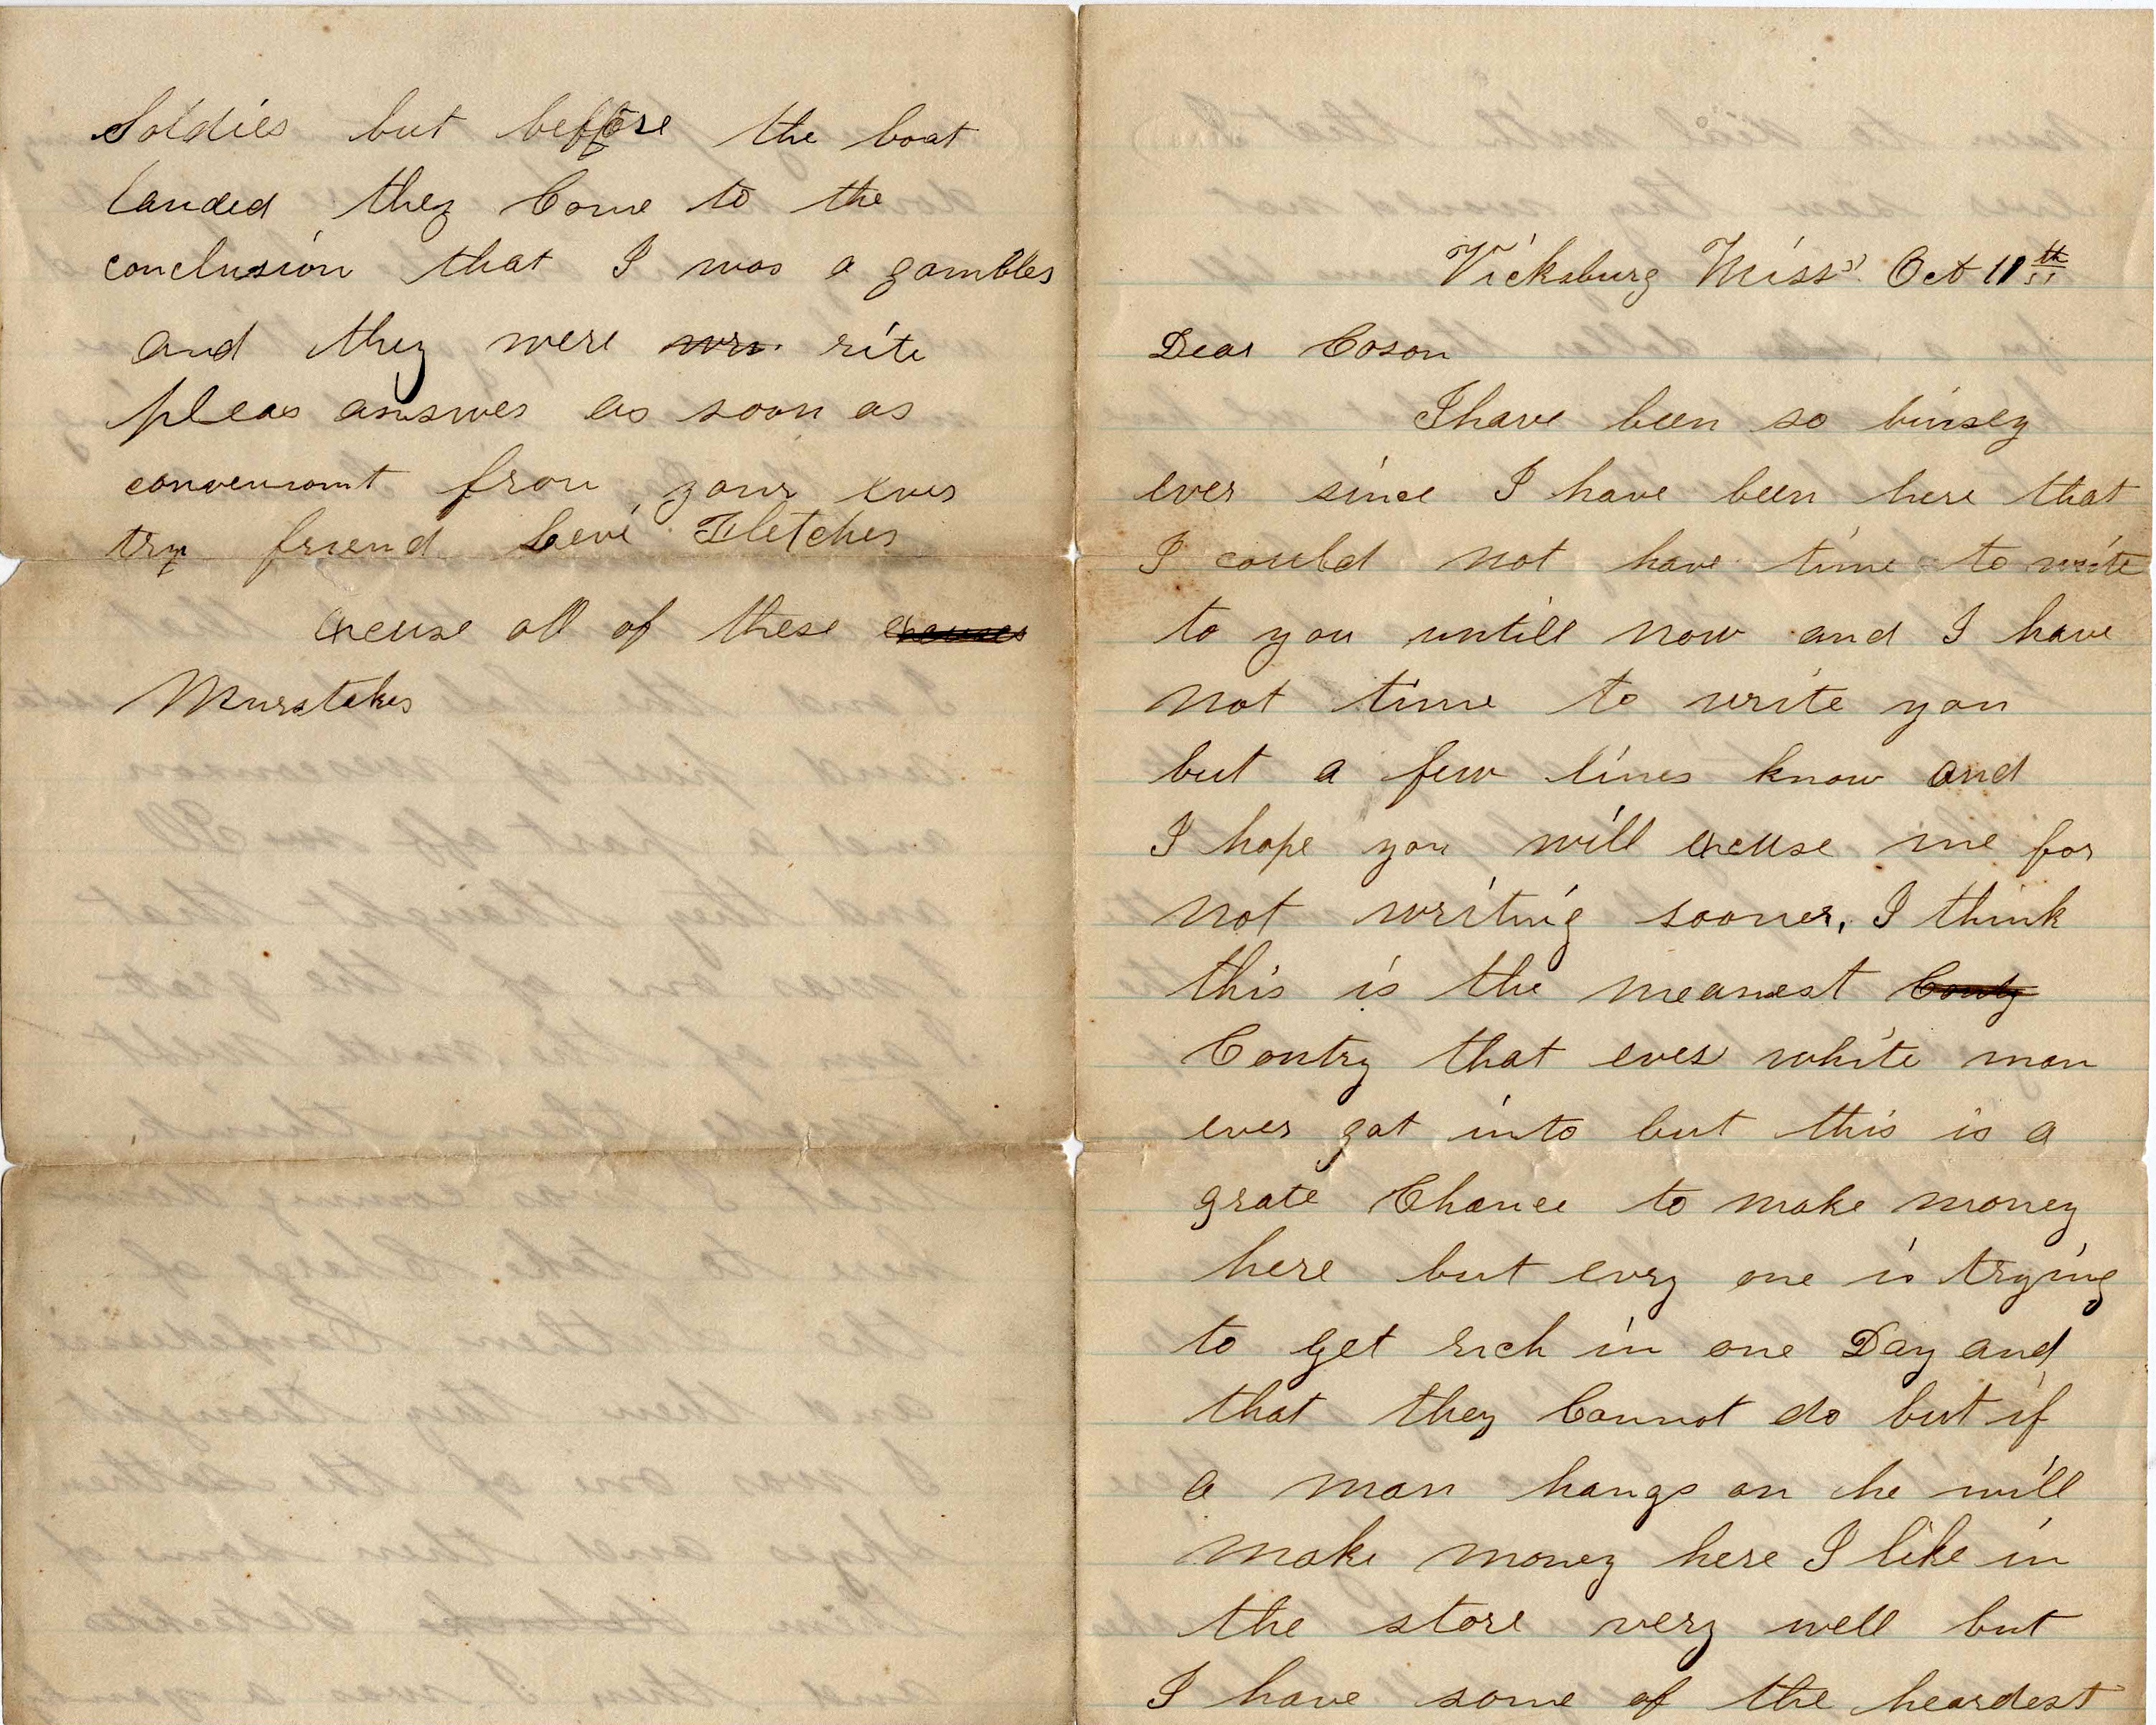 Vicksburg Miss" Oct 11th
Dear Coson
I have been so buisey
ever since I have been here that
I could not have time to write
to you untill now and I have
not time to write you
but a few lines know and
I hope you will excuse me for
not writing sooner, I think
this is the meanest Conty
Contry that ever white man
ever got into but this is a
grate Chance to make money
here but evry one is trying
to get rich in one Day and
that they Cannot do but if
a man hangs on he will
make money here I like in
the store very well but
I have some of the heardest
Soldier but beffore the boat
landed they Come to the
conclusion that I was a gambler
and they were wri rite
pleas answer as soon as
from your ever
try friend Levi Fletcher
excuse all of these excuses
Murstakes